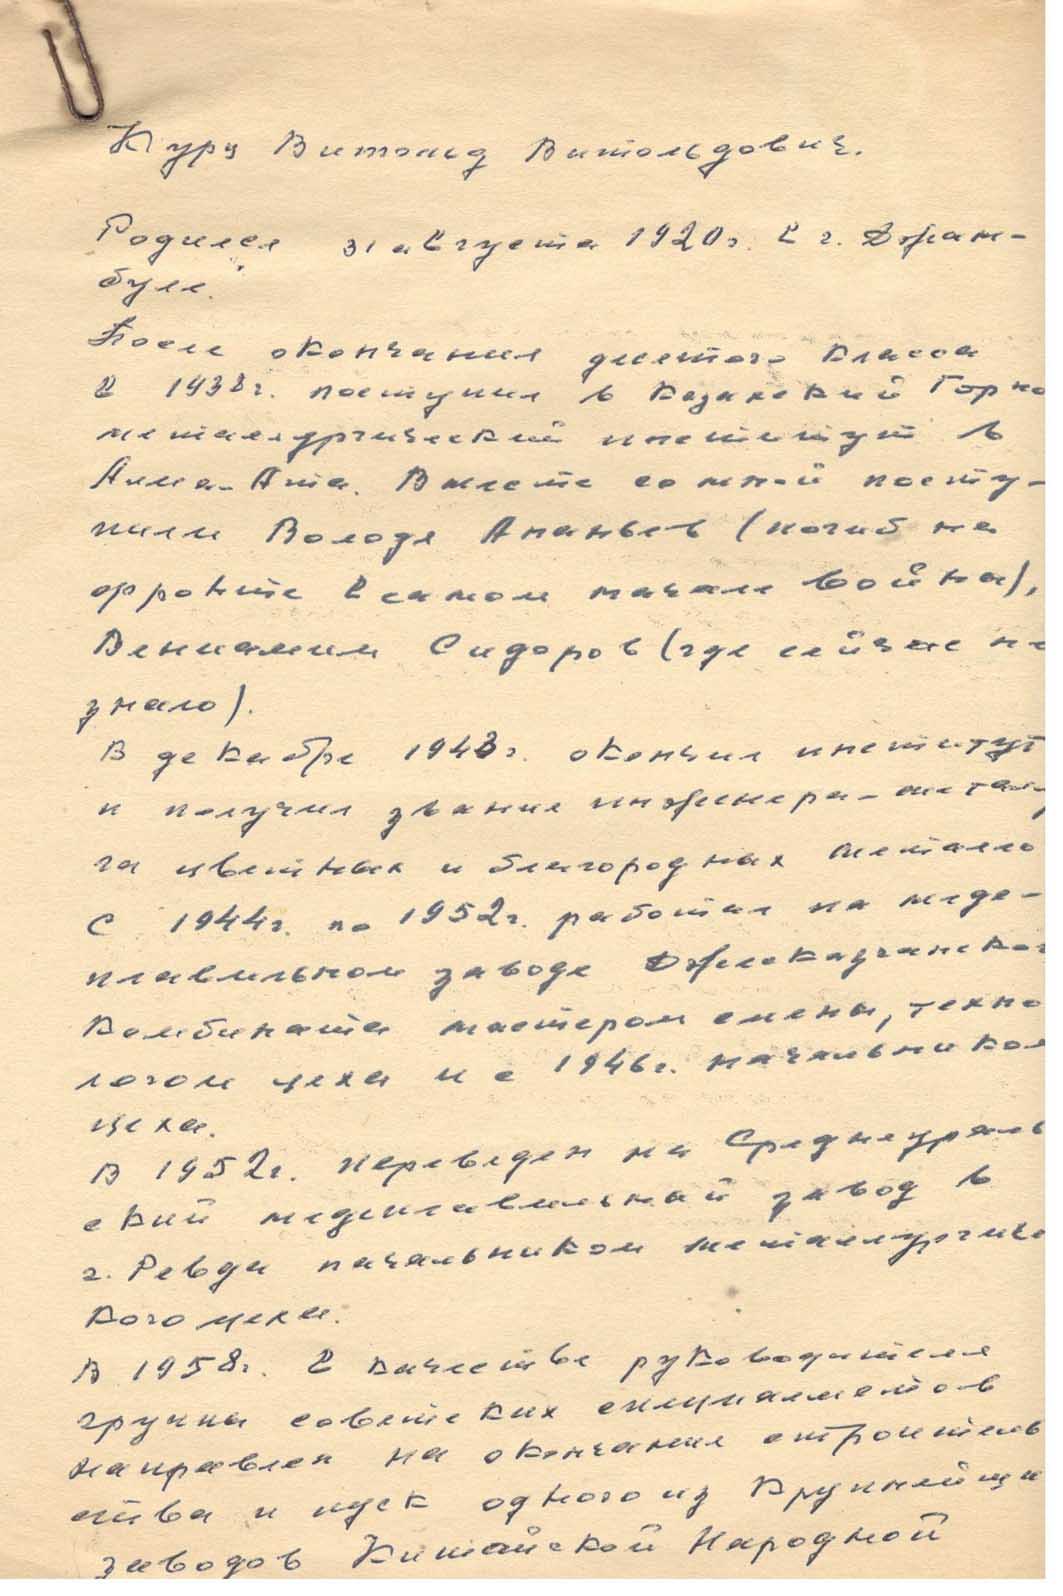 Курц Витольд Витольдович.
Родился 31 августа 1920г. в г. Джам-
буле.
После окончания десятого класса
в 1938г. поступил в Казахский Горно
металлургический институт в
Алма-Ата. Вместе со мной посту-
пили Володя Ананьев (погиб на
фронте в самом начале войны),
Вениамин Сидоров (где сейчас не
знаю).
В декабре 1943г. окончил институт
и получил звание инженера-металлур
га цветных и благородных металло
С 1944г. по 1952г. работал на меде-
плавильном заводе Джезказганског
комбината мастером смены, техно
логом цеха и с 1946г. начальником
цеха.
В 1952г. переведен на Среднеураль
ский медеплавильный завод в
г. Ревда начальником металлургичес
кого цеха.
В 1958г. в качестве руководителя
группы советских специалистов
направлен на окончание строитель
ства и пуск одного из крупнейши
заводов Китайской Народной